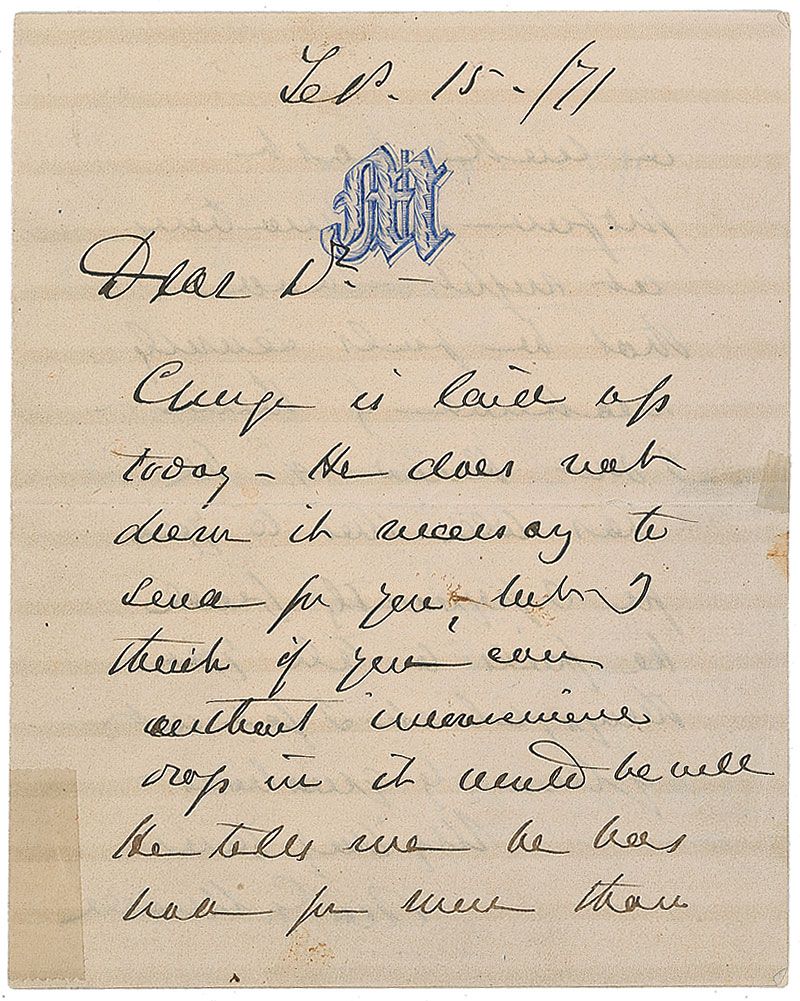 Sep. 15 - /71
M
Dear Dr -
George is laid up
today - He does not
deem it necessary to
send for you, but I
think if you can
without inconvenience
drop in it would be well
He tells me he has
had for more than